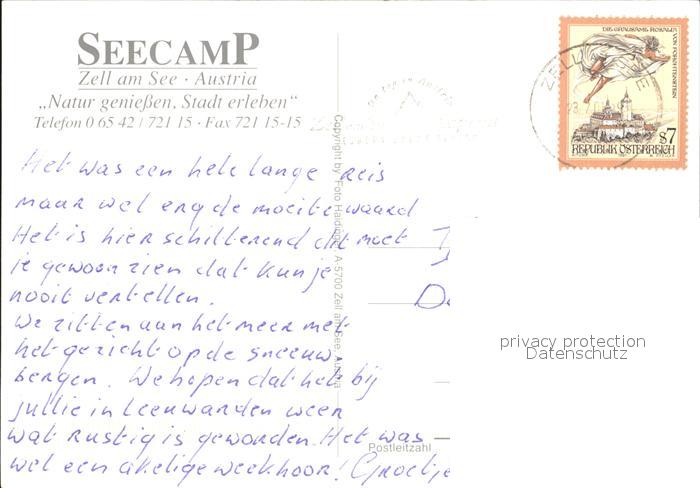 SEECAMP
Zell am See · Austria
„Natur genießen, Stadt erleben“
Telefon 0 65 42 / 721 15 · Fax 721 15-15
Het was een hele lange reis
maar wel erg de moeite waard
Het is hier schitterend dat moet
je gewoon zien dat kun je
nooit vertellen.
We zitten aan het meer met
het gezicht op de sneeuw-
bergen. We hopen dat het bij
jullie in Leeuwarden weer
wat rustig is geworden. Het was
wel een akelige week hoor! Groetje
Copyright by Foto Haidinger, A-5700 Zell am See, Austria
Postleitzahl
DIE GRAUSAME ROSALIA
VON FORCHTENSTEIN
S7
REPUBLIK ÖSTERREICH
ZELL
privacy protection
Datenschutz